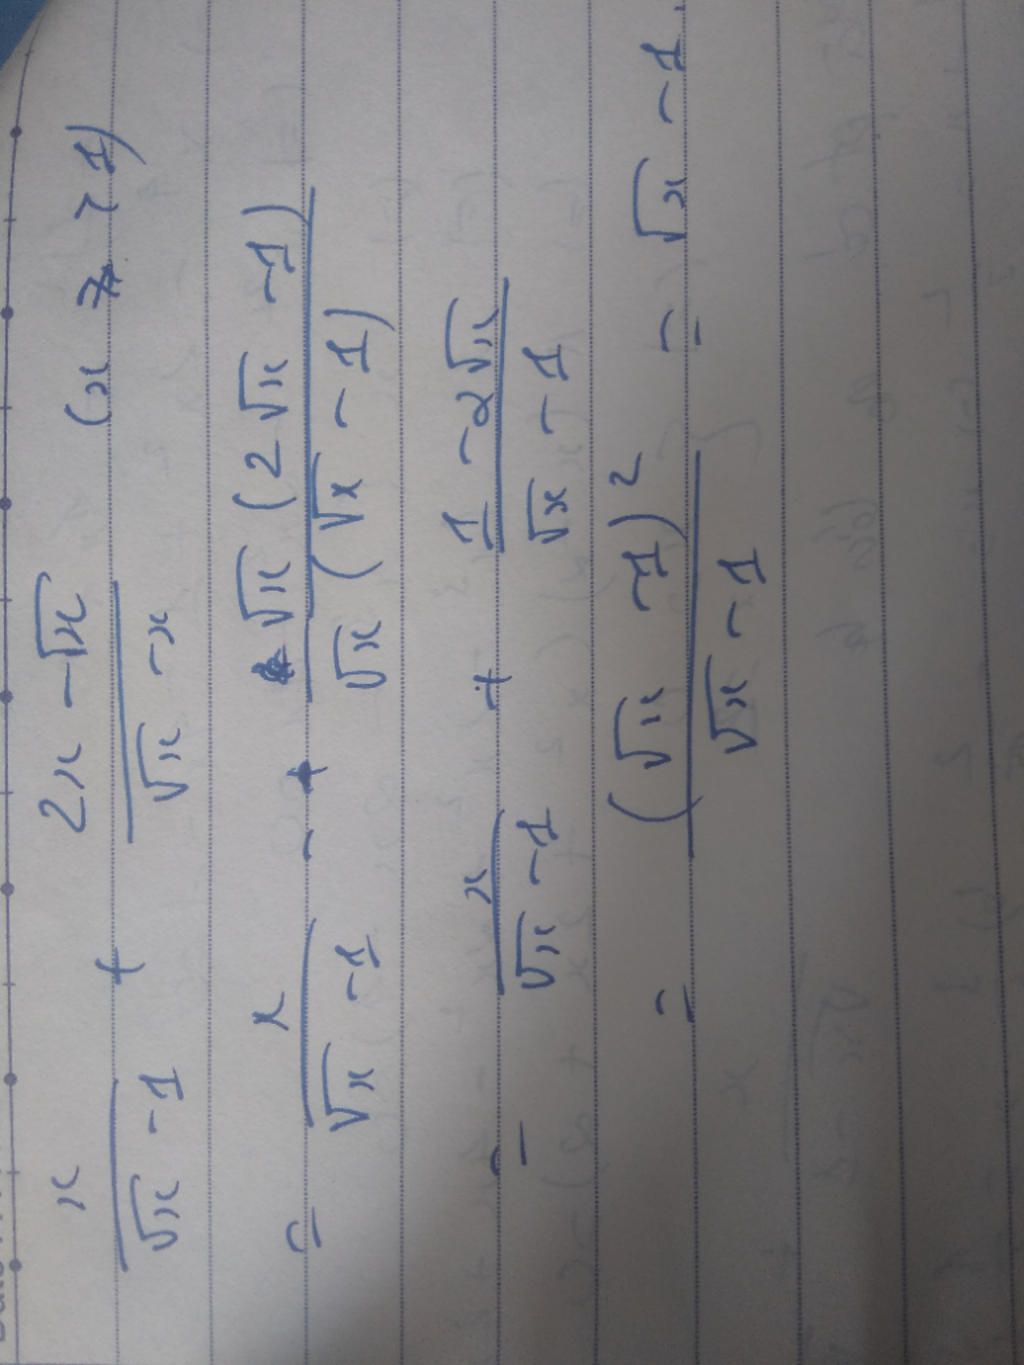 x/(√x - 1) + (2x - √x)/(√x - x) (x > 1)
= x/(√x - 1) - √x(2√x - 1)/(√x(√x - 1))
= x/(√x - 1) + (1 - 2√x)/(√x - 1)
= (√x - 1)²/(√x - 1) = √x - 1.